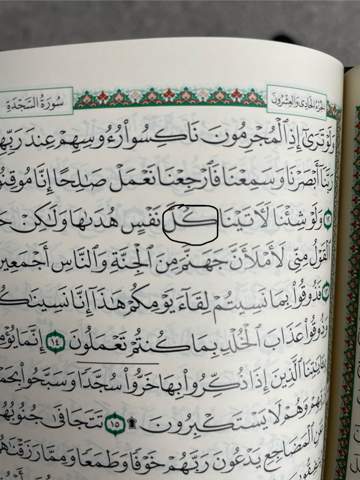 سُورَةُ السَّجْدَةِ
الجُزْءُ الحَادِي وَالعِشْرُونَ
وَلَوْ تَرَىٰٓ إِذِ ٱلْمُجْرِمُونَ نَاكِسُوا۟ رُءُوسِهِمْ عِندَ رَبِّهِ
رَبَّنَآ أَبْصَرْنَا وَسَمِعْنَا فَٱرْجِعْنَا نَعْمَلْ صَٰلِحًا إِنَّا مُوقِنُو
١٢ وَلَوْ شِئْنَا لَءَاتَيْنَا كُلَّ نَفْسٍ هُدَىٰهَا وَلَٰكِنْ حَ
ٱلْقَوْلُ مِنِّى لَأَمْلَأَنَّ جَهَنَّمَ مِنَ ٱلْجِنَّةِ وَٱلنَّاسِ أَجْمَعِينَ
١٣ فَذُوقُوا۟ بِمَا نَسِيتُمْ لِقَآءَ يَوْمِكُمْ هَٰذَآ إِنَّا نَسِينَٰكُ
وَذُوقُوا۟ عَذَابَ ٱلْخُلْدِ بِمَا كُنتُمْ تَعْمَلُونَ ١٤ إِنَّمَا يُؤْمِ
بِـَٔايَٰتِنَا ٱلَّذِينَ إِذَا ذُكِّرُوا۟ بِهَا خَرُّوا۟ سُجَّدًا وَسَبَّحُوا۟ بِحَمْ
رَبِّهِمْ وَهُمْ لَا يَسْتَكْبِرُونَ ۩ ١٥ تَتَجَافَىٰ جُنُوبُهُ
عَنِ ٱلْمَضَاجِعِ يَدْعُونَ رَبَّهُمْ خَوْفًا وَطَمَعًا وَمِمَّا رَزَقْنَٰهُ